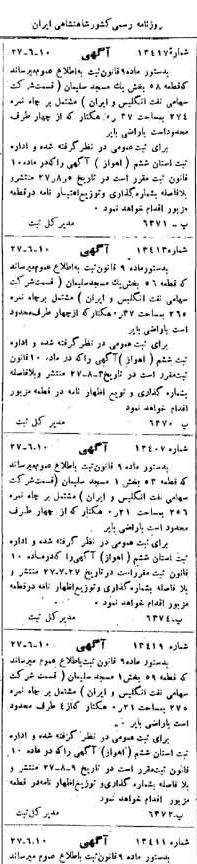 روزنامه رسمی کشور شاهنشاهی ایران
شماره ۱۳۴۱۷ آگهی ۲۷-۶-۱۰
بدستور ماده ۹ قانون ثبت به اطلاع عموم میرساند
که قطعه ۵۸ بخش یك مسجد سلیمان (قسمت شرکت
سهامی نفت انگلیس و ایران) مشتمل بر چاه نمره
۲۷۴ بمساحت ۳۷ر۰ هکتار که از چهار طرف
محدود است باراضی بایر
برای ثبت عمومی در نظر گرفته شده و اداره
ثبت استان ششم (اهواز) آگهی را که در ماده ۱۰
قانون ثبت مقرر است در تاریخ ۲۷ر۸ر۵ منتشر و
بلافاصله بشماره گذاری و توزیع اظهار نامه در قطعه
مزبور اقدام خواهد نمود
پ-۶۳۷۱ مدیر کل ثبت
شماره ۱۳۴۱۳ آگهی ۲۷-۶-۱۰
بدستور ماده ۹ قانون ثبت به اطلاع عموم میرساند
که قطعه ۵۶ بخش یك مسجد سلیمان (قسمت شرکت
سهامی نفت انگلیس و ایران) مشتمل بر چاه نمره
۲۶۵ بمساحت ۳۷ر۰ هکتار که از چهار طرف محدود
است باراضی بایر
برای ثبت عمومی در نظر گرفته شده و اداره
ثبت ششم (اهواز) آگهی را که در ماده ۱۰ قانون
ثبت مقرر است در تاریخ ۳-۸-۲۷ منتشر و بلافاصله
بشماره گذاری و توزیع اظهار نامه در قطعه مزبور
اقدام خواهد نمود
پ ۶۳۷۰ مدیر کل ثبت
شماره ۱۳۴۰۷ آگهی ۲۷-۶-۱۰
بدستور ماده ۹ قانون ثبت باطلاع عموم میرساند
که قطعه ۵۳ بخش ۱ مسجد سلیمان (قسمت شرکت
سهامی نفت انگلیس و ایران) مشتمل بر چاه نمره
۲۵۶ بمساحت ۲۱ر۰ هکتار که از چهار طرف
محدود است باراضی بایر
برای ثبت عمومی در نظر گرفته شده و اداره
ثبت استان ششم (اهواز) آگهی را که در ماده ۱۰
قانون ثبت مقرر است در تاریخ ۲۷-۷-۲۷ منتشر و
بلافاصله بشماره گذاری و توزیع اظهار نامه در قطعه
مزبور اقدام خواهد نمود
پ-۶۳۷۴ مدیر کل ثبت
شماره ۱۳۴۱۹ آگهی ۲۷-۶-۱۰
بدستور ماده ۹ قانون ثبت باطلاع عموم میرساند
که قطعه ۵۹ بخش ۱ مسجد سلیمان (قسمت شرکت
سهامی نفت انگلیس و ایران) مشتمل بر چاه نمره
۲۷۵ بمساحت ۲۱ر۰ هکتار که از ۴ طرف محدود
است باراضی بایر
برای ثبت عمومی در نظر گرفته شده و اداره
ثبت استان ششم (اهواز) آگهی را که در ماده ۱۰
قانون ثبت مقرر است در تاریخ ۹-۸-۲۷ منتشر و
بلا فاصله بشماره گذاری و توزیع اظهار نامه در قطعه
مزبور اقدام خواهد نمود
پ-۶۳۷۲ مدیر کل ثبت
شماره ۱۳۴۱۱ آگهی ۲۷-۶-۱۰
بدستور ماده ۹ قانون ثبت باطلاع عموم میرساند